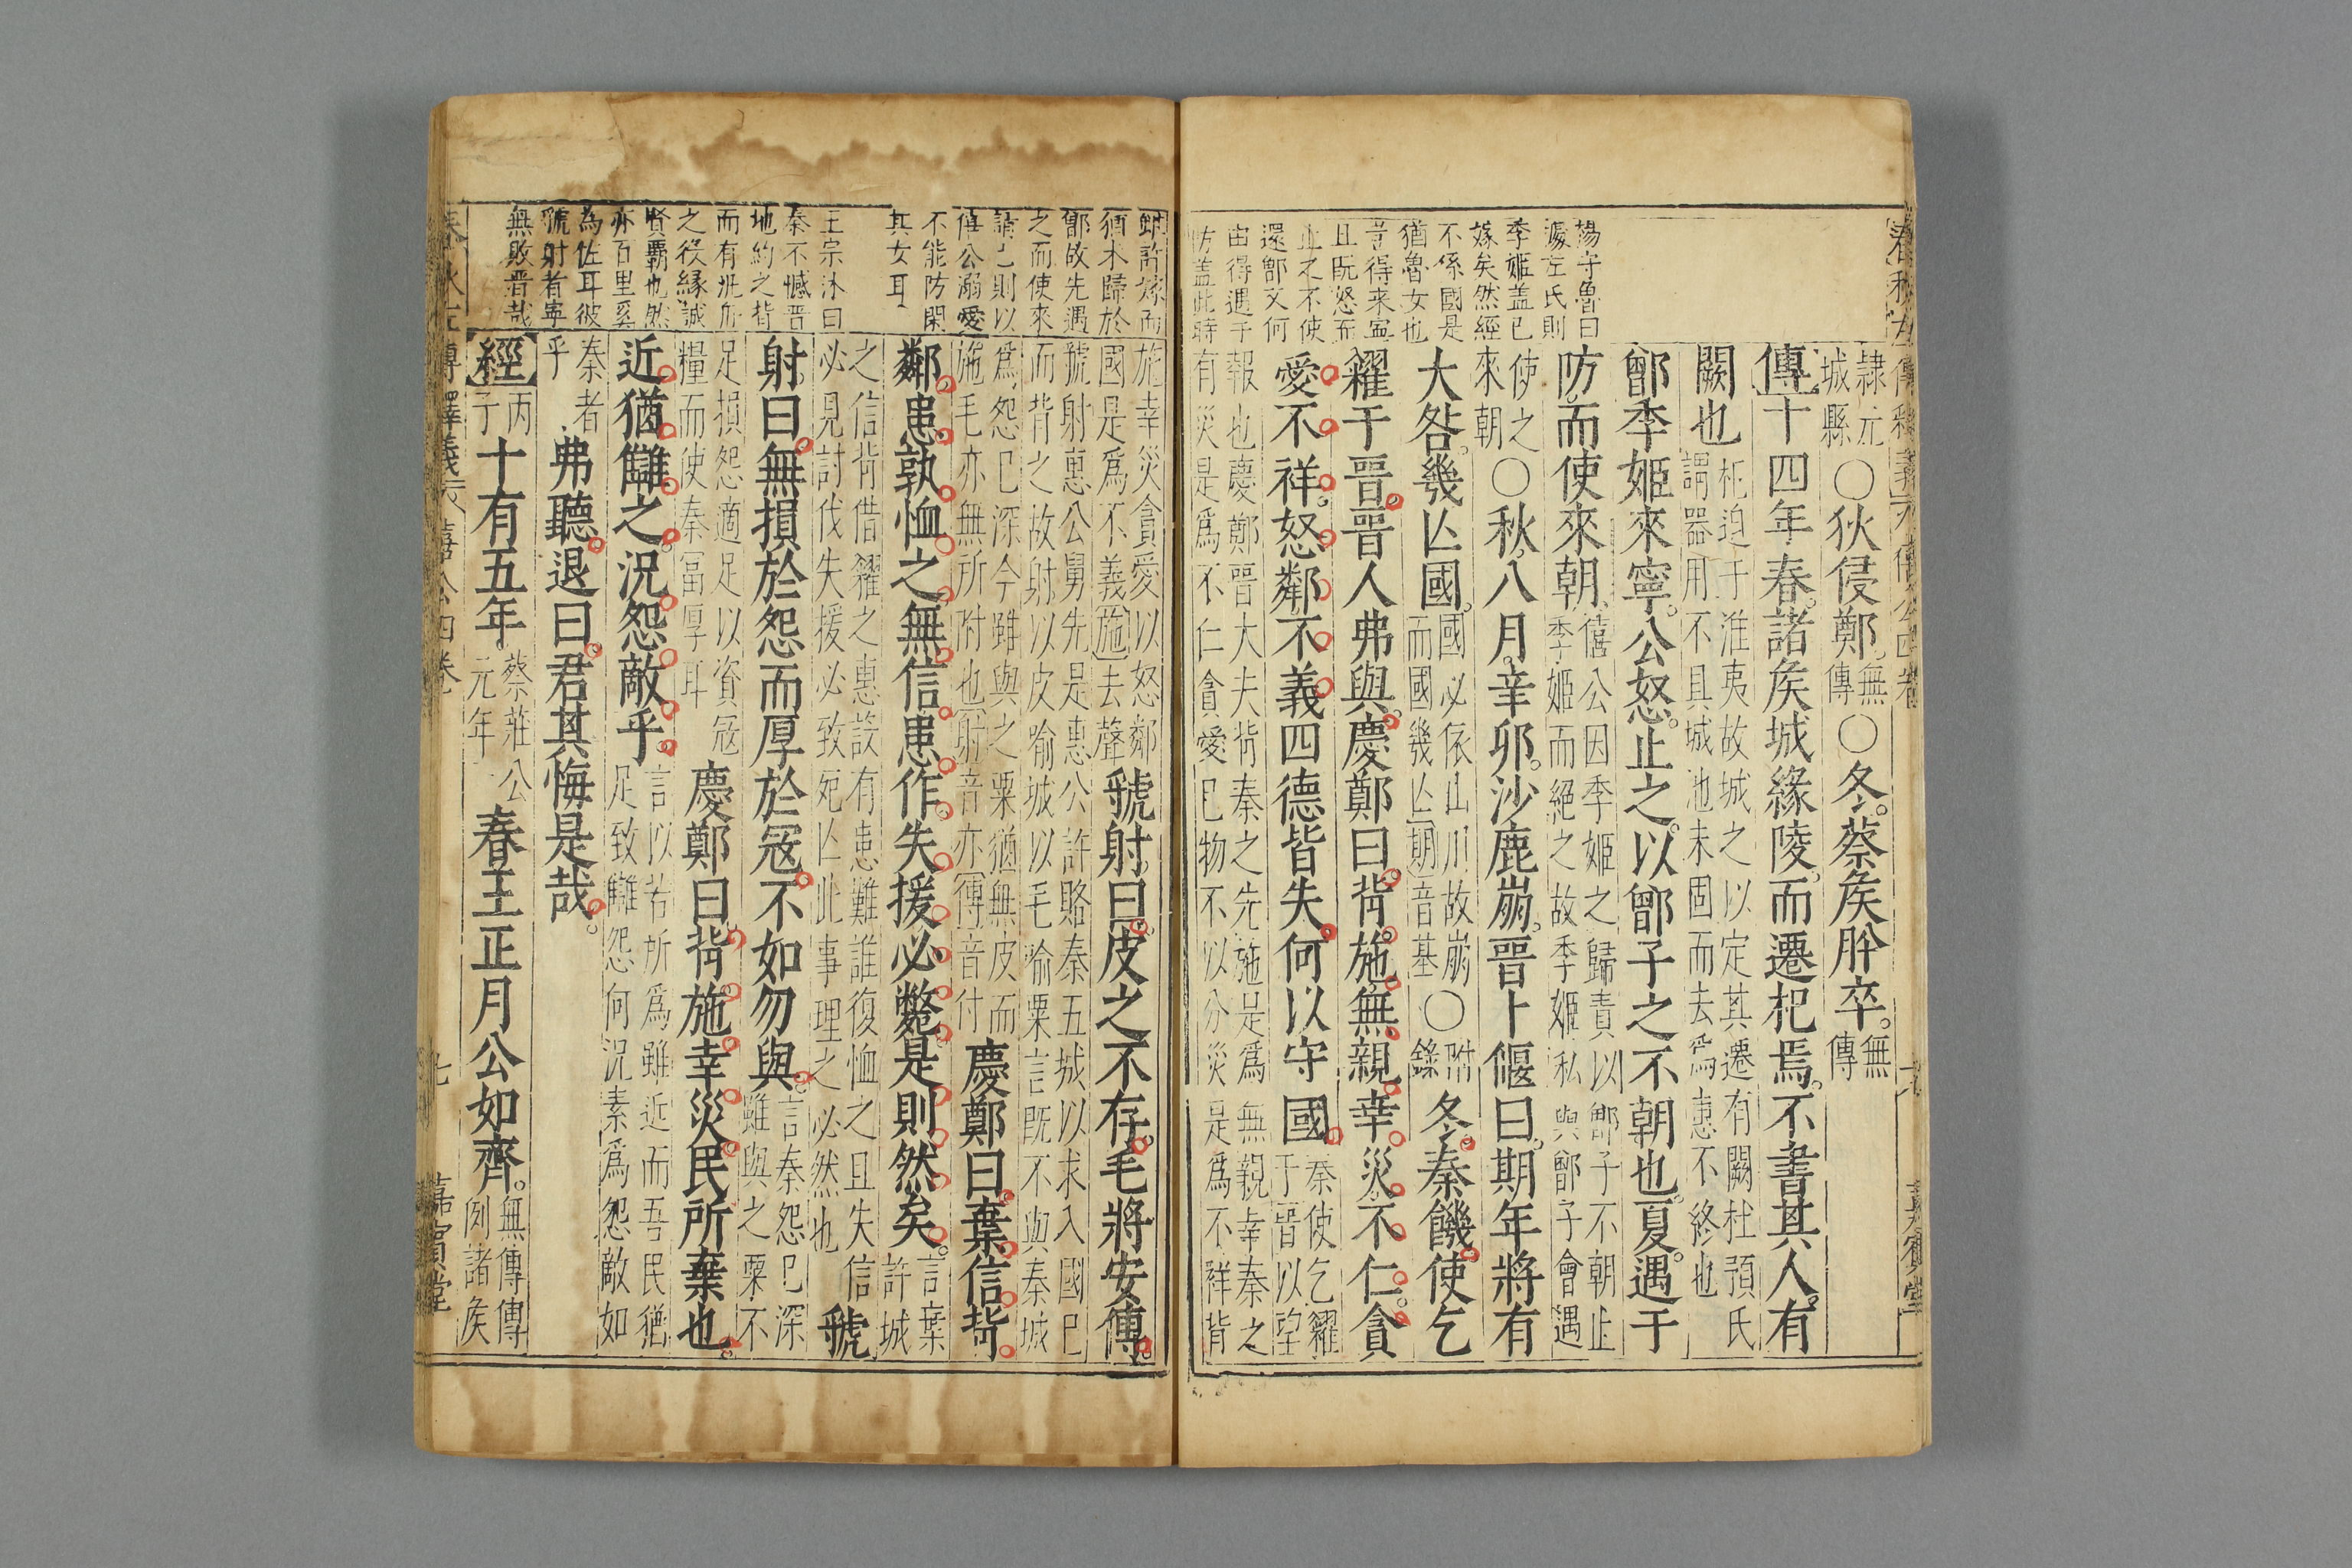 楊守魯曰
據左氏則
季姬盖已
嫁矣然經
不係國是
猶魯女也
旹得来寧
且既怒而
止之不使
還鄫又何
由得遇于
防盖此時
隷元
城縣
○狄侵鄭。
無
傳
○冬。蔡矦肸卒。
無
傳
傳十四年春。諸矦城緣陵。而遷杞焉。不書其人。有
闕也
杞迫于淮夷故城之以定其遷有闕杜預氏
謂器用不具城池未固而去為惠不終也
鄫季姬來寧。公怒。止之。以鄫子之不朝也。夏。遇于
防。而使來朝。
僖公因季姬之歸責以鄫子不朝止
季姬而絕之故季姬私與鄫子會遇
使之
來朝
○秋。八月。辛卯。沙鹿崩。晉卜偃曰。期年將有
大咎。幾亾國。
國必依山川故崩
而國幾亾期音基
○
附
錄
冬。秦饑。使乞
糴于晉。晉人弗與。慶鄭曰。背施。無親。幸災。不仁。貪
秦使乞糴
于晉以望
愛。不祥。怒鄰。不義。四德皆失。何以守國。
報也慶鄭晉大夫背秦之先施是爲無親幸秦之
有災是爲不仁貪愛已物不以分災是爲不祥背
鄫許嫁而
猶未歸於
鄫故先遇
之而使來
請已則以
僖公溺愛
不能防閑
其女耳
王宗沐曰
秦不憾晉
地約之背
而有泚舟
之役緣誠
賢覇也然
亦百里奚
為佐耳彼
虢射者寧
無敗晋哉
施幸災貪愛以怒鄰
國是爲不義施去聲
虢射曰。皮之不存。毛將安傅。
虢射惠公舅先是惠公許賂秦五城以求入國已
而背之故射以皮喻城以毛喻粟言既不與秦城
爲怨已深今雖與之粟猶無皮而
施毛亦無所附也射音亦傅音付
慶鄭曰。棄信背
鄰。患孰恤之。無信患作。失援必斃。是則然矣。
言棄
許城
之信背借糴之惠設有患難誰復恤之且失信
必見討伐失援必致死亾此事理之必然也
虢
射曰。無損於怨。而厚於冦。不如勿與。
言秦怨已深
雖與之粟不
足損怨適足以資冦
糧而使秦冨厚耳
慶鄭曰。背施。幸災。民所棄也。
近猶讎之。況怨敵乎。
言以若所爲雖近而吾民猶
足致讎怨何況素爲怨敵如
秦者
乎
弗聽。退曰。君其悔是哉。
經丙
子
十有五年。
蔡莊公
元年
春王正月。公如齊。
無傳傳
例諸矦
嘉賓堂